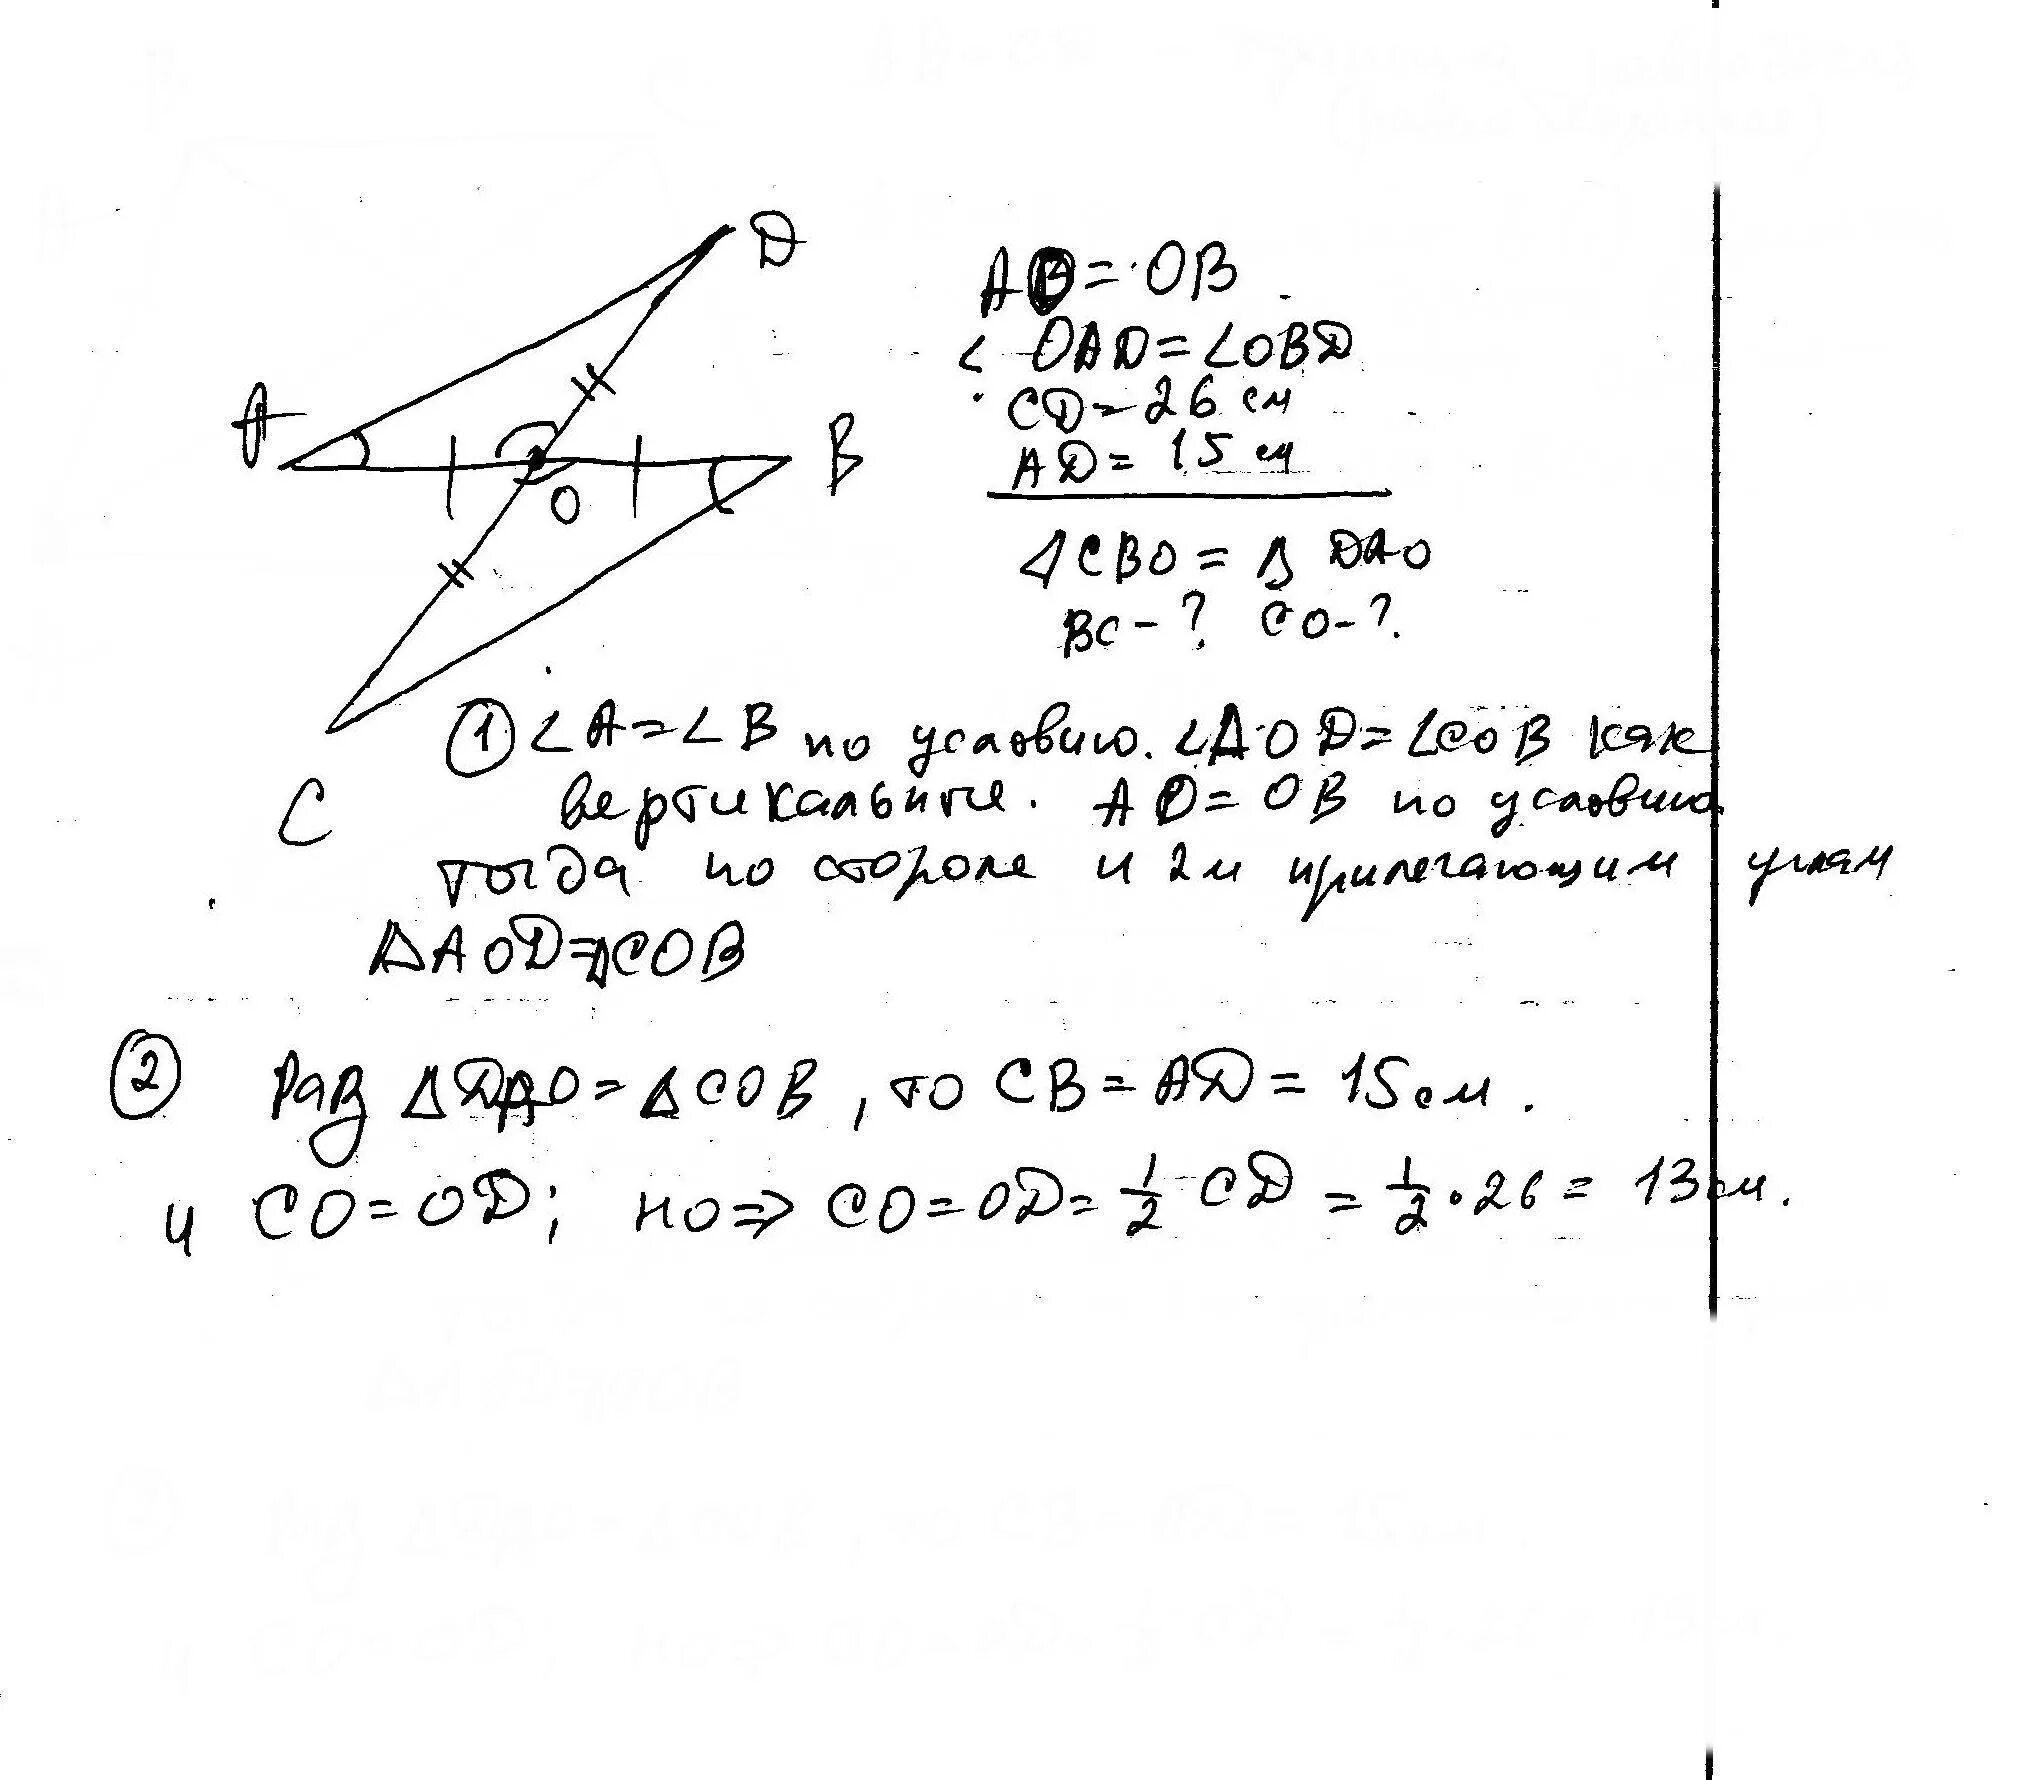 D
A
B
O
C
AO = OB
< OAD = ∠OBD
CD = 26 см
AD = 15 см
△CBO = △ DAO
BC - ? CO - ?
① ∠A = ∠B по условию. ∠AOD = ∠COB как
вертикальные. AO = OB по условию
тогда по стороне и 2м прилегающим углам
△AOD = △COB
② Раз △DAO = △COB, то CB = AD = 15 см.
и CO = OD; но ⇒ CO = OD = 1/2 CD = 1/2 · 26 = 13 см.